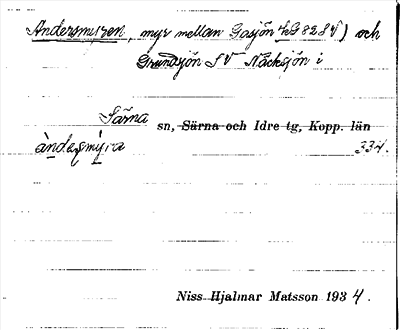 Andersmyren, myr mellan Gasjön (LG 8284) och
Grundsjön SV Näcksjön i
Särna sn, Särna och Idre tg, Kopp. län
àndeṣmỳra 334.
Niss Hjalmar Matsson 1934.